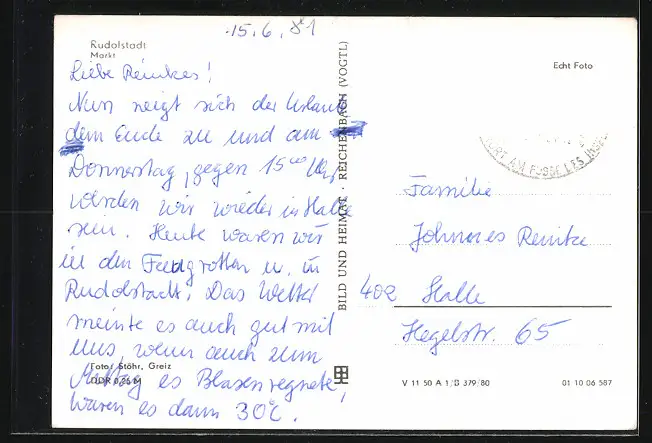 15.6.81
Rudolstadt
Markt
Liebe Reinkes!
Nun neigt sich der Urlaub
dem Ende zu und am
Donnerstag, gegen 15 00 Uhr,
werden wir wieder in Halle
sein. Heute waren wir
in den Feengrotten u. in
Rudolstadt. Das Wetter
meinte es auch gut mit
uns, wenn auch zum
Foto: Stöhr, Greiz
Mittag es Blasen regnete,
DDR 0,25 M
waren es dann 30°C.
BILD UND HEIMAT · REICHENBACH (VOGTL)
Echt Foto
AM FUSSE DES
Familie
Johannes Reinke
402 Halle
Hegelstr. 65
V 11 50 A 1/B 379/80
01 10 06 587